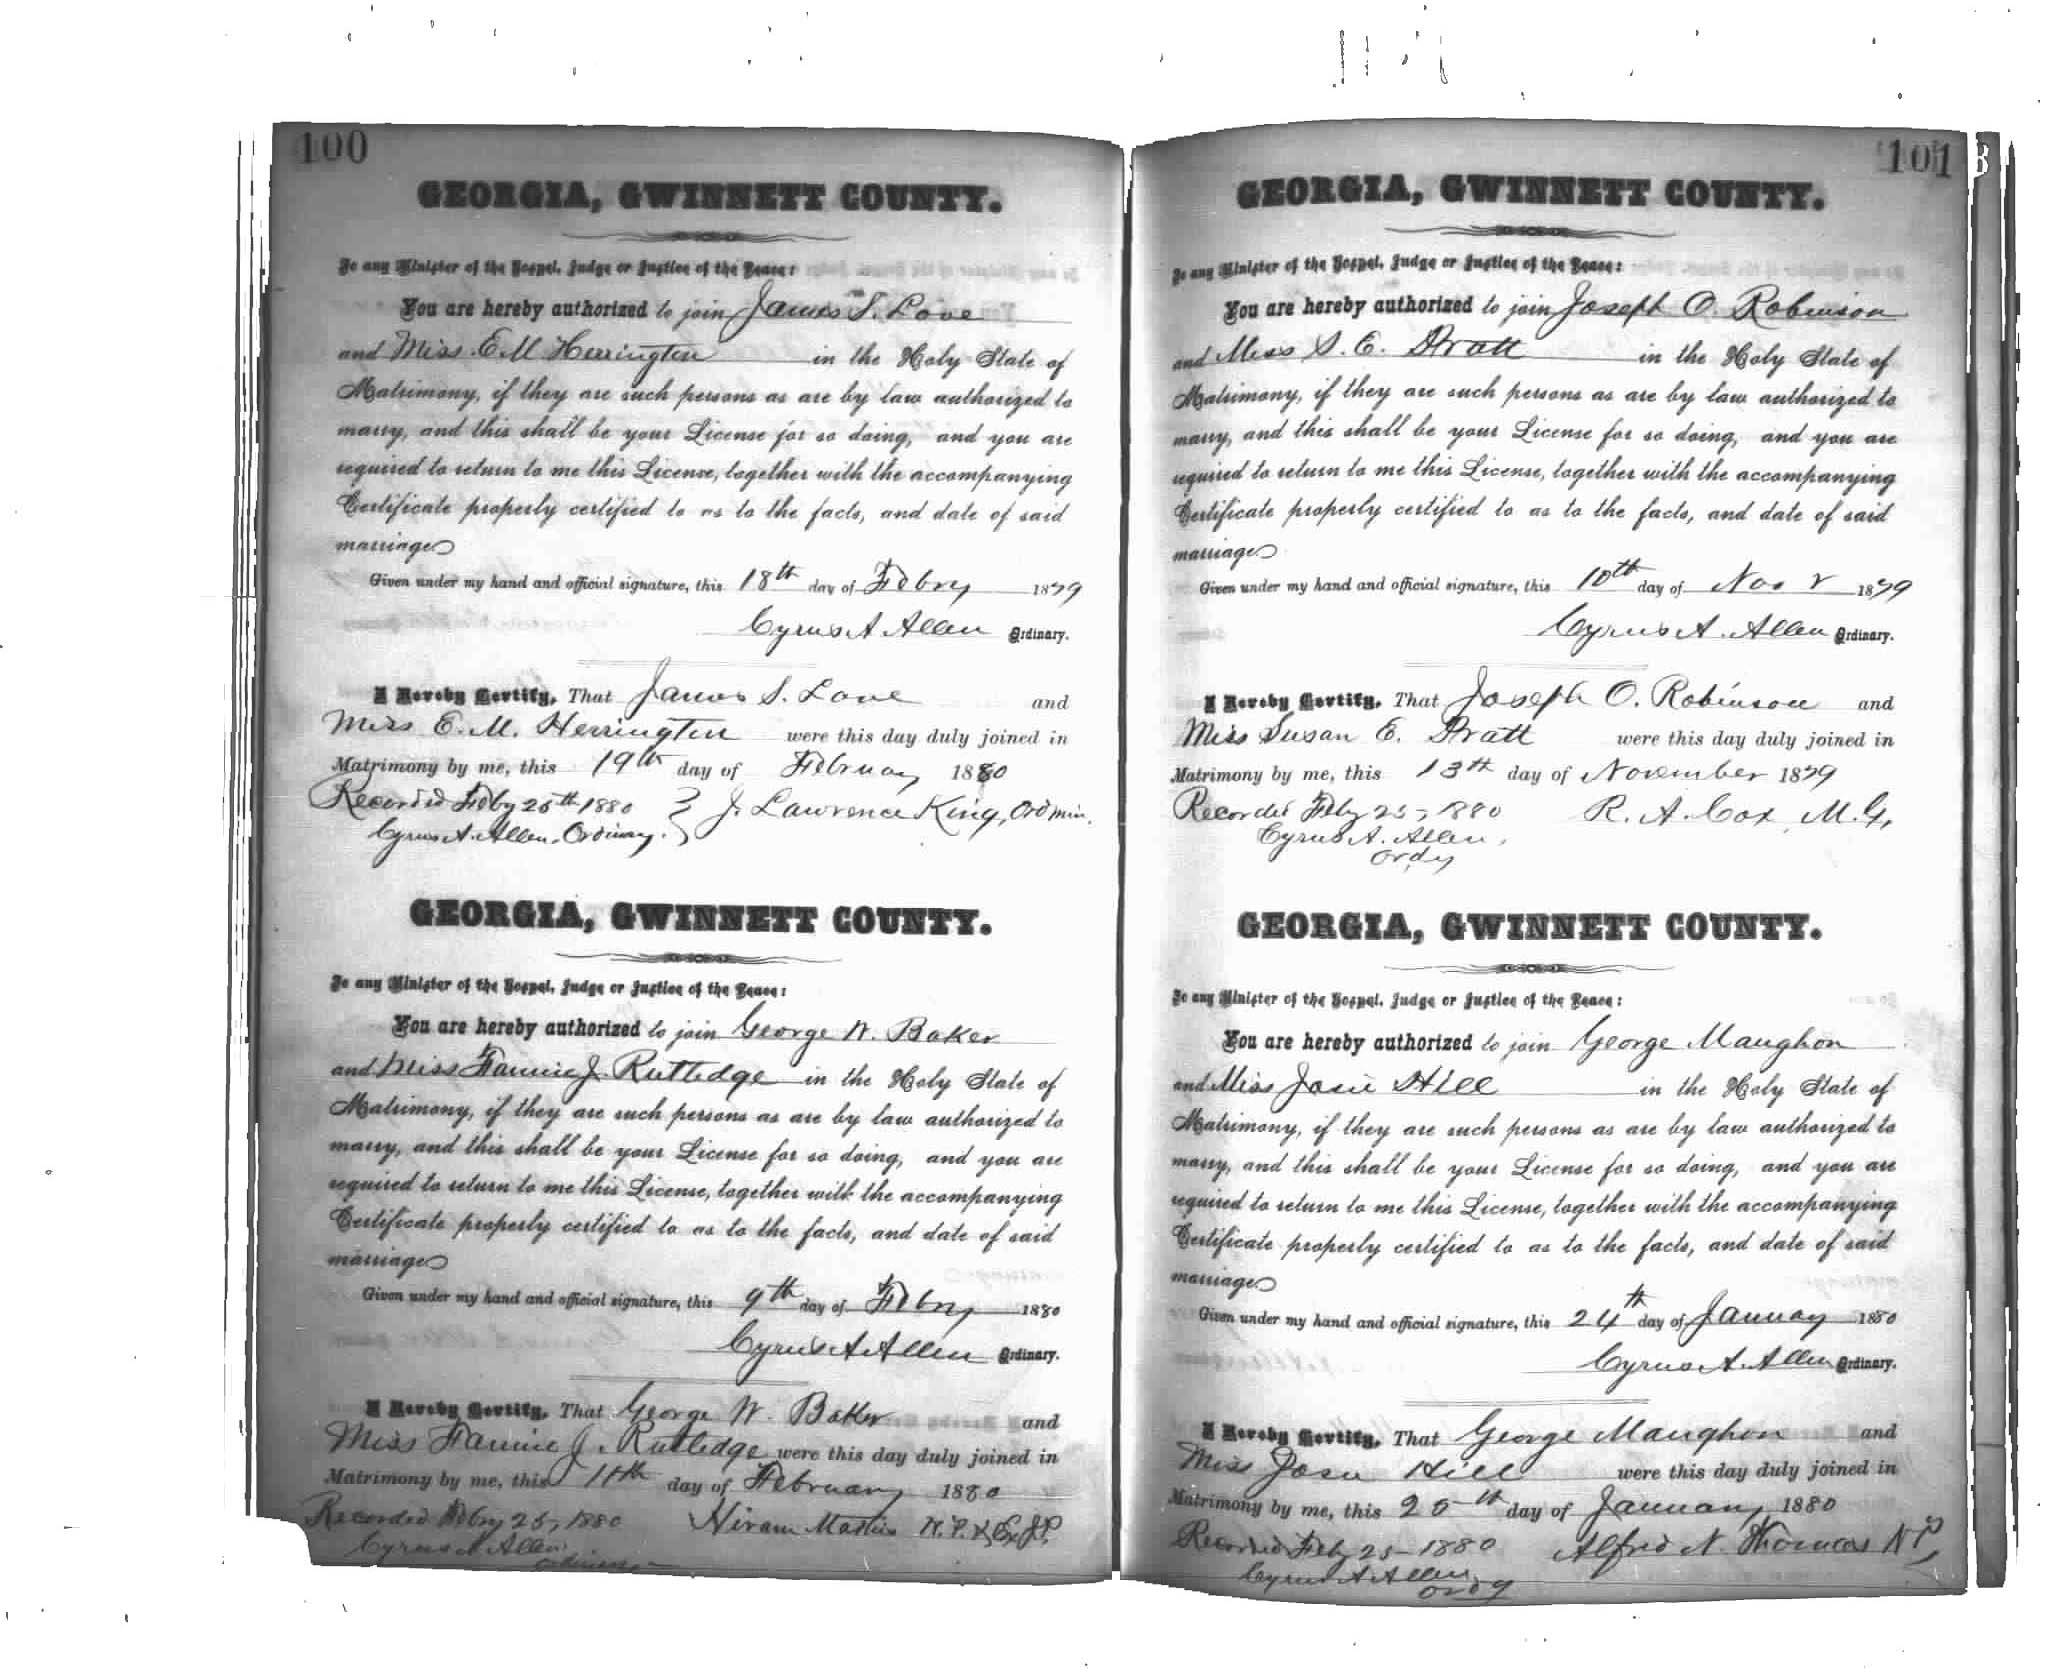 100
GEORGIA, GWINNETT COUNTY.
To any Minister of the Gospel, Judge or Justice of the Peace:
You are hereby authorized to join James S. Love
and Miss E M Herrington in the Holy State of
Matrimony, if they are such persons as are by law authorized to
marry, and this shall be your License for so doing, and you are
required to return to me this License, together with the accompanying
Certificate properly certified to as to the facts, and date of said
marriage
Given under my hand and official signature, this 18th day of Febry 1879
Cyrus A Allen Ordinary.
I Hereby Certify, That James S. Love and
Miss E. M. Herrington were this day duly joined in
Matrimony by me, this 19th day of February 1880
Recorded Feby 25th 1880 J. Lawrence King, Ord min.
Cyrus A. Allen, Ordinary.
GEORGIA, GWINNETT COUNTY.
To any Minister of the Gospel, Judge or Justice of the Peace:
You are hereby authorized to join George W. Baker
and Miss Fannie J. Rutledge in the Holy State of
Matrimony, if they are such persons as are by law authorized to
marry, and this shall be your License for so doing, and you are
required to return to me this License, together with the accompanying
Certificate properly certified to as to the facts, and date of said
marriage
Given under my hand and official signature, this 9th day of Febry 1880
Cyrus A Allen Ordinary.
I Hereby Certify, That George W. Baker and
Miss Fannie J. Rutledge were this day duly joined in
Matrimony by me, this 11th day of February 1880
Recorded Febry 25, 1880 Hiram N. P. & Ex J.P.
Cyrus A Allen
Ordinary
101
GEORGIA, GWINNETT COUNTY.
To any Minister of the Gospel, Judge or Justice of the Peace:
You are hereby authorized to join Joseph O. Robinson
and Miss S. E. Pratt in the Holy State of
Matrimony, if they are such persons as are by law authorized to
marry, and this shall be your License for so doing, and you are
required to return to me this License, together with the accompanying
Certificate properly certified to as to the facts, and date of said
marriage
Given under my hand and official signature, this 10th day of Nov r 1879
Cyrus A. Allen Ordinary.
I Hereby Certify, That Joseph O. Robinson and
Miss Susan E. Pratt were this day duly joined in
Matrimony by me, this 13th day of November 1879
Recorded Feby 25, 1880 R. A. Cox, M. G.
Cyrus A. Allen,
Ordy
GEORGIA, GWINNETT COUNTY.
To any Minister of the Gospel, Judge or Justice of the Peace:
You are hereby authorized to join George Maughon
and Miss Josie Hill in the Holy State of
Matrimony, if they are such persons as are by law authorized to
marry, and this shall be your License for so doing, and you are
required to return to me this License, together with the accompanying
Certificate properly certified to as to the facts, and date of said
marriage
Given under my hand and official signature, this 24th day of January 1880
Cyrus A. Allen Ordinary.
I Hereby Certify, That George Maughon and
Miss Josie Hill were this day duly joined in
Matrimony by me, this 25th day of January 1880
Recorded Feby 25 1880 Alfred N. Thomas N P
Cyrus A Allen
Ordy